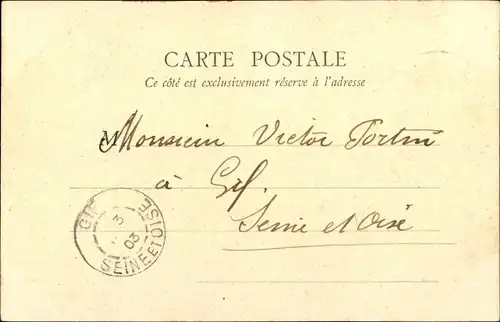 CARTE POSTALE
Ce côté est exclusivement réservé à l'adresse
Monsieur Victor Fortin
à Gif.
Seine et Oise
GIF
3
03
SEINE ET OISE